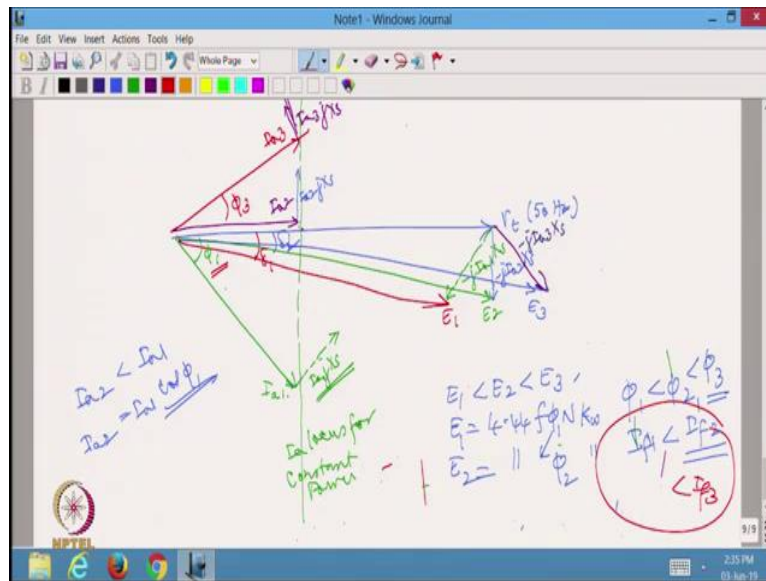 Note1 - Windows Journal
File Edit View Insert Actions Tools Help
Whole Page
B I
Ia3jXs
Ia3
ϕ3
Ia2
Ia2jXs
Vt (50 Hz)
ϕ1
δ1
δ2
-jIa1Xs
-jIa2Xs
-jIa3Xs
E1
E2
E3
Ia1
Ia1jXs
Ia2 < Ia1
Ia2 = Ia1 cos ϕ1
Ia locus for
Constant
Power
E1 < E2 < E3
E1 = 4.44 f ϕ1 N Kw
E2 = " ϕ2 "
ϕ1 < ϕ2 < ϕ3
If1 < If2
< If3
NPTEL
9/9
2:35 PM
03-Jun-19